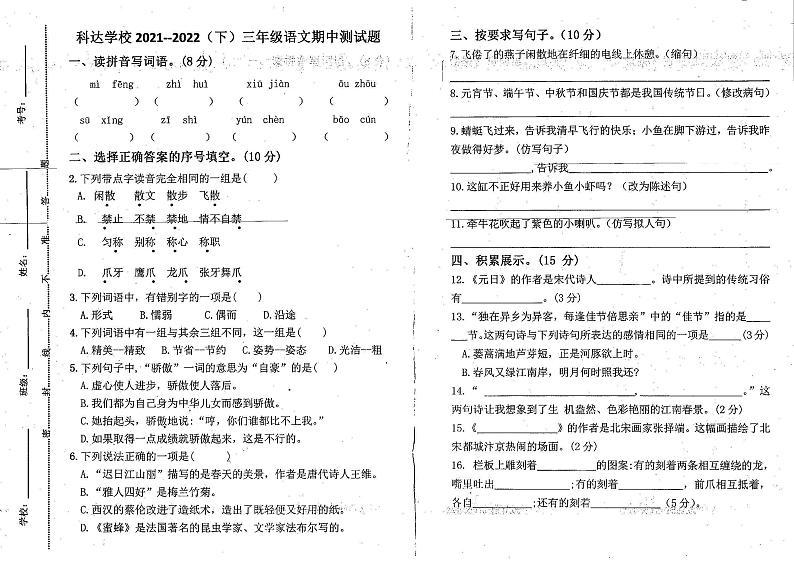 科达学校 2021--2022（下）三年级语文期中测试题
一、读拼音写词语。(8 分)
mì fēng zhì huì xiū jiàn ōu zhōu
( ) ( ) ( ) ( )
sū xǐng zī shì yún chèn bāo cún
( ) ( ) ( ) ( )
二、选择正确答案的序号填空。(10 分)
2.下列带点字读音完全相同的一组是( )
A. 闲散 散文 散步 飞散
B. 禁止 不禁 禁地 情不自禁
C. 匀称 别称 称心 称职
D. 爪牙 鹰爪 龙爪 张牙舞爪
3.下列词语中，有错别字的一项是( )
A.形式 B.懦弱 C.偶而 D.沿途
4.下列词语中有一组与其余三组不同，这一组是( )
A.精美--精致 B.节省--节约 C.姿势--姿态 D.光洁--粗
5.下列句子中，“骄傲”一词的意思为“自豪”的是( )
A.虚心使人进步，骄傲使人落后。
B.我们都为自己身为中华儿女而感到骄傲。
C.她抬起头，骄傲地说:“哼，你们谁都比不上我。”
D.如果取得一点成绩就骄傲起来，这是不行的。
6.下列说法正确的一项是( )
A.“迟日江山丽”描写的是春天的美景，作者是唐代诗人王维。
B.“雅人四好”是梅兰竹菊。
C.西汉的蔡伦改进了造纸术，造出了既轻便又好用的纸。
D.《蜜蜂》是法国著名的昆虫学家、文学家法布尔写的。
三、按要求写句子。(10 分)
7.飞倦了的燕子闲散地在纤细的电线上休憩。（缩句）
8.元宵节、端午节、中秋节和国庆节都是我国传统节日。（修改病句）
9.蜻蜓飞过来，告诉我清早飞行的快乐；小鱼在脚下游过，告诉我昨
夜做得好梦。（仿写句子）
____________,告诉我____________________________。
10.这缸不正好用来养小鱼小虾吗？（改为陈述句）
11.牵牛花吹起了紫色的小喇叭。（仿写拟人句）
四、积累展示。(15 分)
12.《元日》的作者是宋代诗人________。诗中所提到的传统习俗
有____________。(3 分)
13.“独在异乡为异客，每逢佳节倍思亲”中的“佳节”指的是____
__节。这两句诗与下列诗句所表达的感情相同的一项是_____(3分)
A.蒌蒿满地芦芽短，正是河豚欲上时。
B.春风又绿江南岸，明月何时照我还？
14.“ ____________________,______________。”这
两句诗让我想象到了生 机盎然、色彩艳丽的江南春景。(2 分)
15.《____________》的作者是北宋画家张择端。这幅画描绘了北
宋都城汴京热闹的场面。(2 分)
16. 栏板上雕刻着________的图案:有的刻着两条相互缠绕的龙，
嘴里吐出__________;有的刻着__________，前爪相互抵着，
各自________;还有的刻着__________ (5 分)。
考号：
姓名：
班级：
学校：
密 封 线 内 不 准 答 题